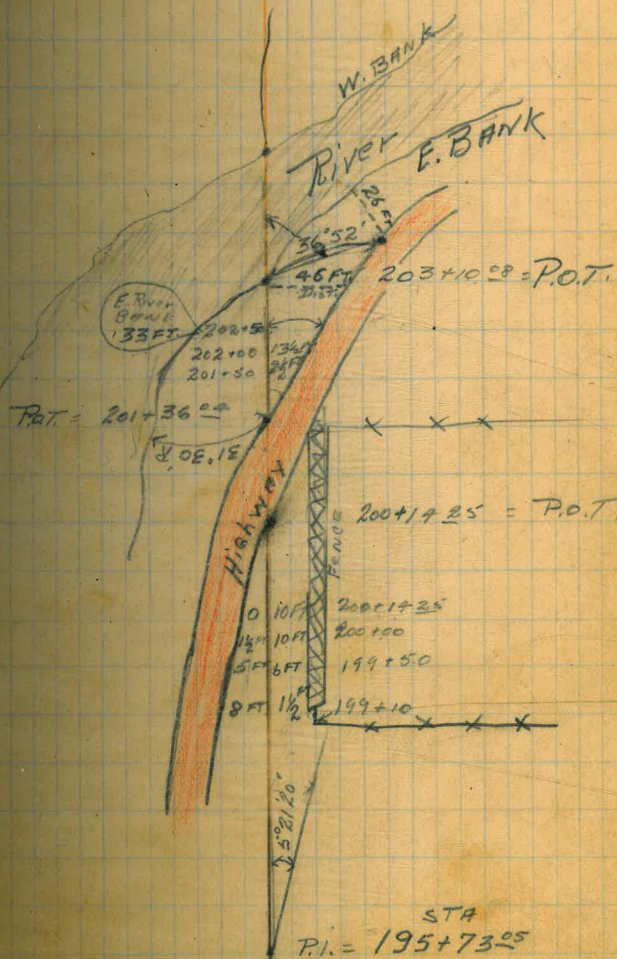 W. BANK
River
E. BANK
26 FT
36°52'
46 FT
Dist.
203+10 08 = P.O.T.
E. River
BANK
33 FT
202+50
202+00 13½ FT
201+50
P.O.T. = 201+36 04
31°30' R
Highway
Fence
200+14 25 = P.O.T.
0 10 FT 200+14 25
1½ FT 10 FT 200+00
5 FT 6 FT 199+50
8 FT 1½ FT 199+10
5°21'20"
STA
P.I. = 195+73 05